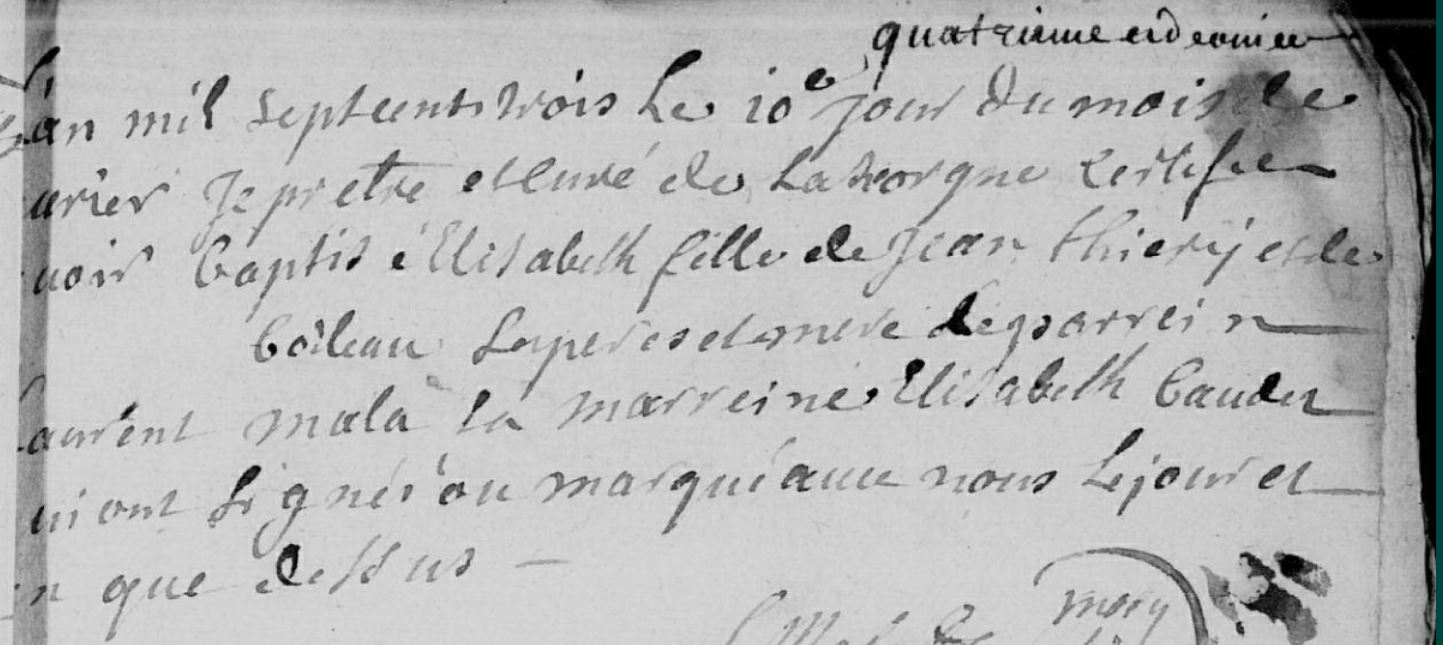 quatrieme et dernier
L'an mil septcents trois Le 10e jour du mois de
urier Je pretre et curé de Lahorgne certifie
uoir baptisé Elisabeth fille de Jean thiery et de
boileau Ses pere et mere le parrein
Laurent mala La marreine Elisabeth baudet
ui ont signés ou marqué auec nous Le jour et
n que dessus
mory